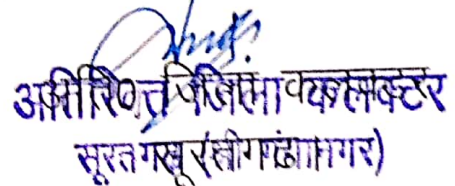 अतिरिक्त जिला कलक्टर
सूरतगढ़ (श्रीगंगानगर)